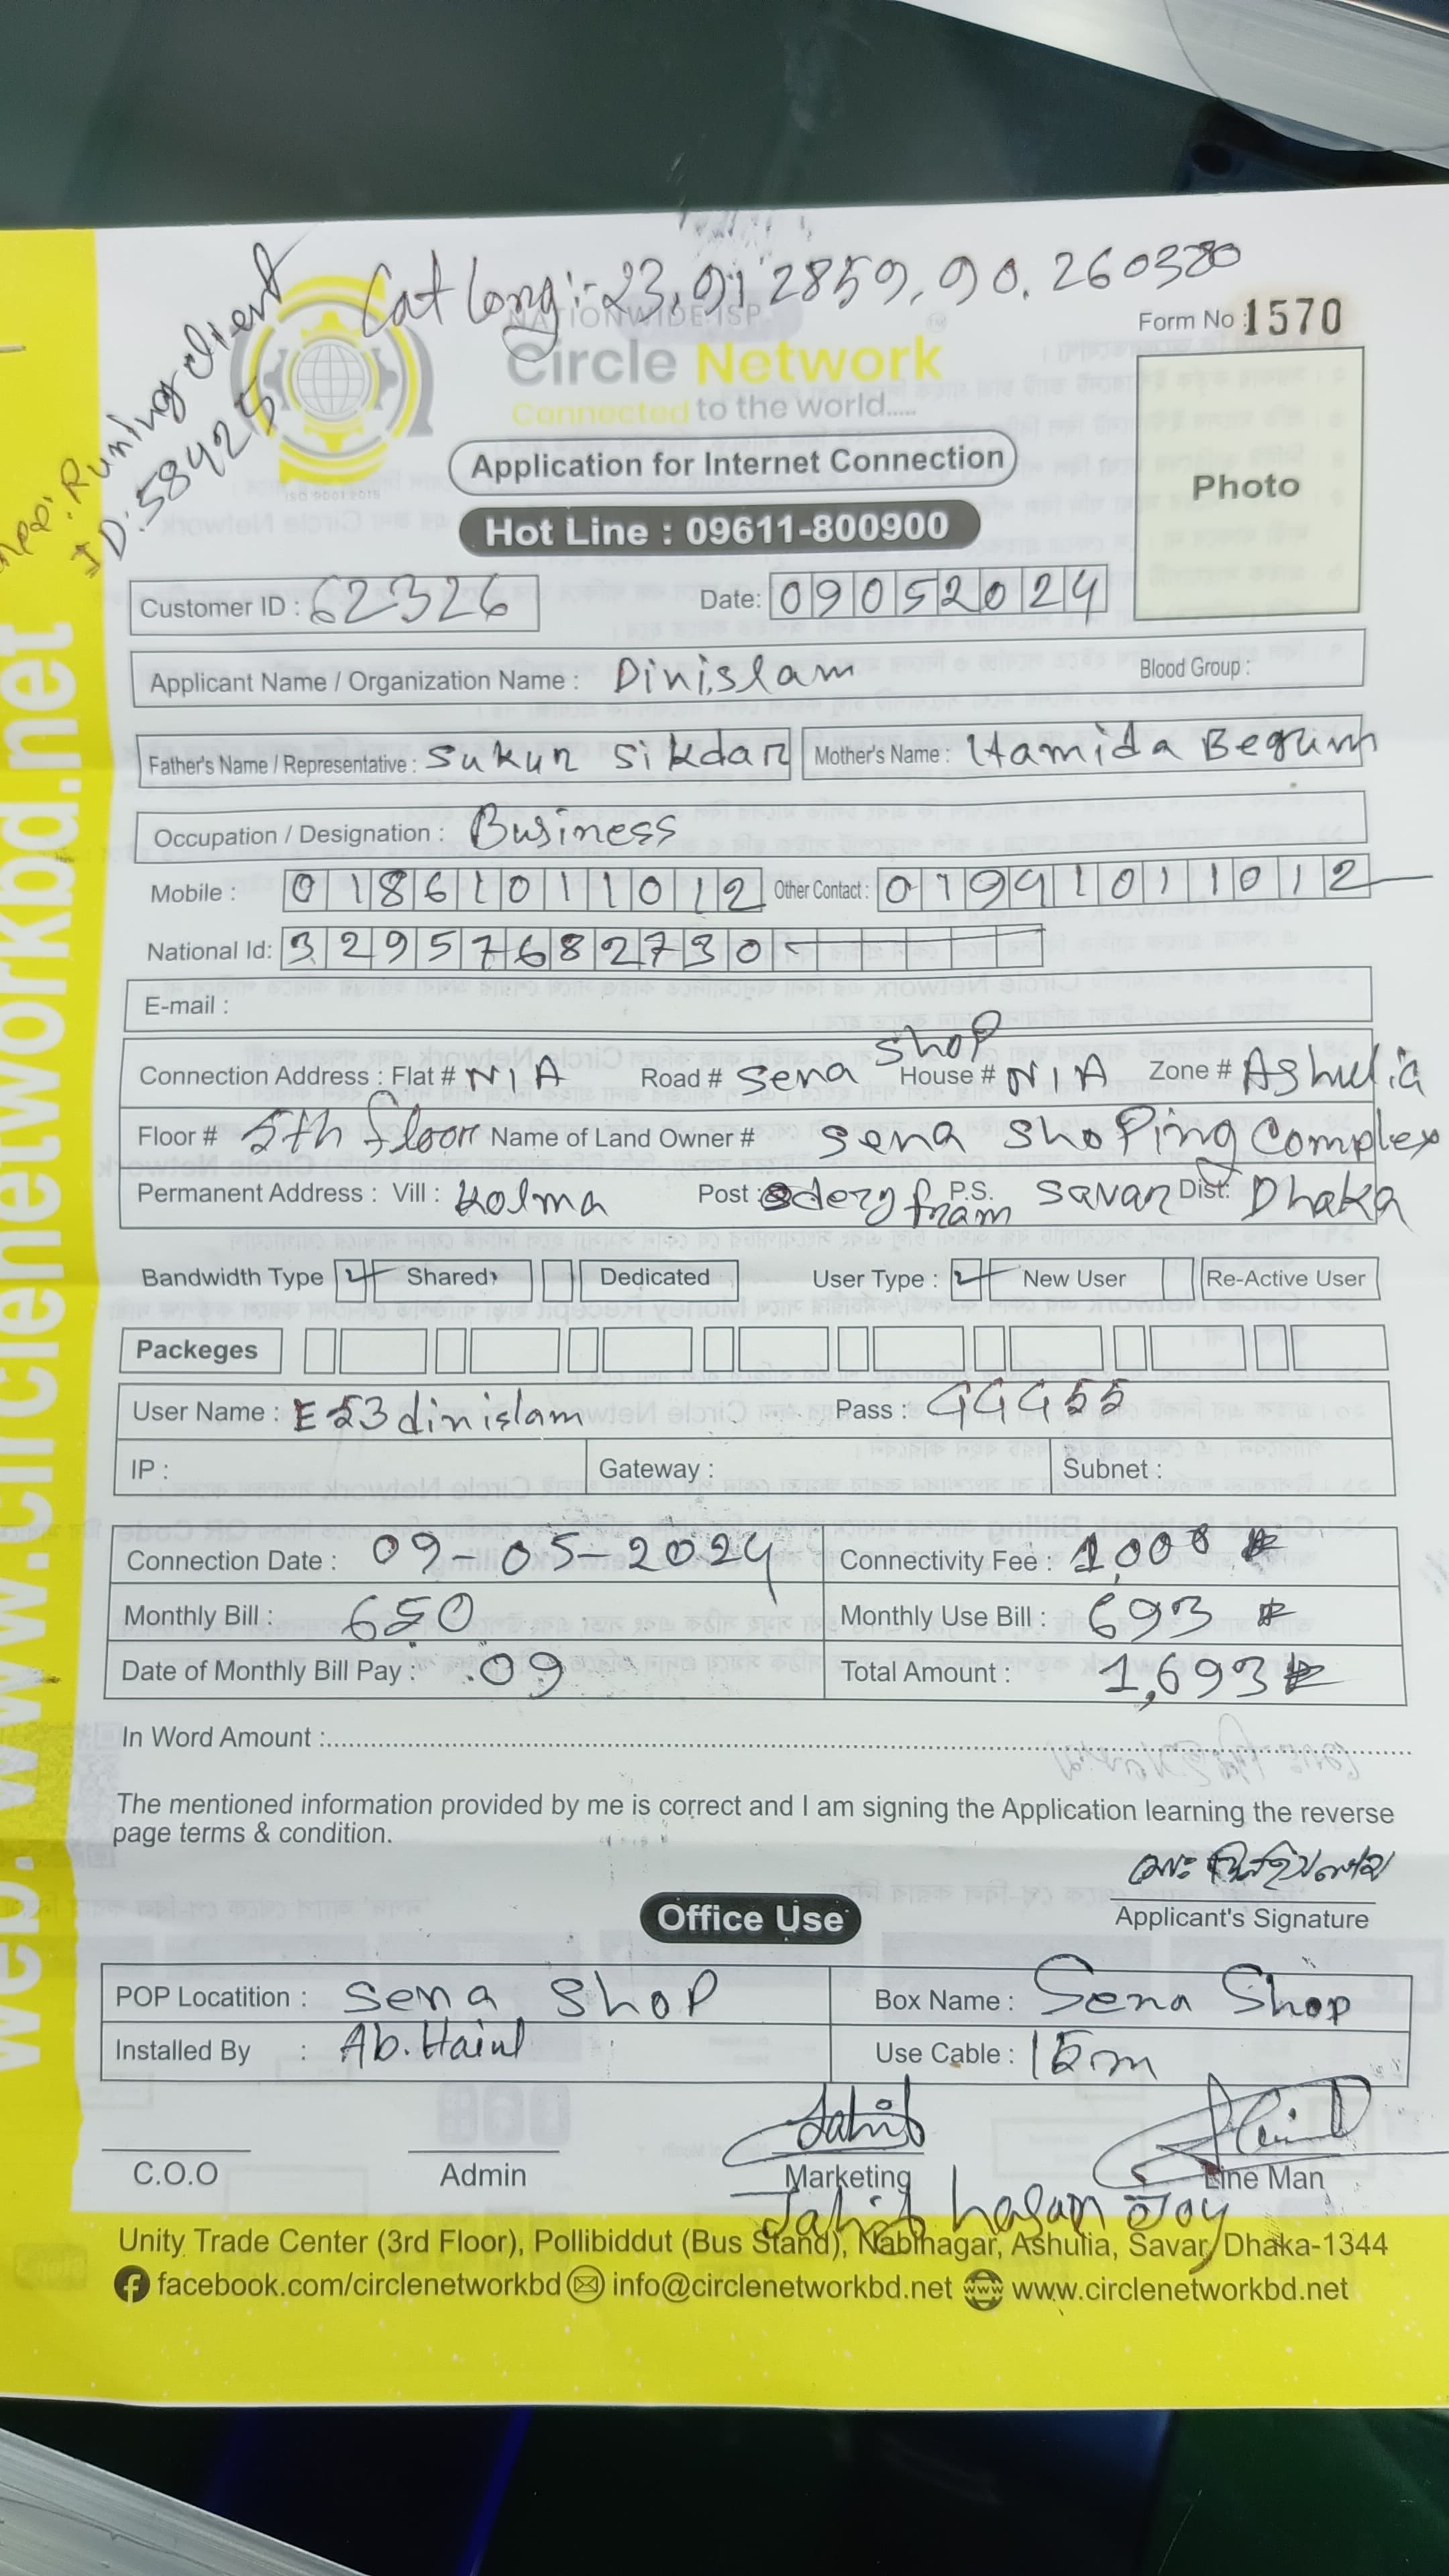 Cat Long:- 23.912859, 90.260380
Runing client
ID: 58425
NATIONWIDE ISP
Circle Network
Connected to the world.....
Form No : 1570
Application for Internet Connection
Photo
Hot Line : 09611-800900
ISO 9001:2015
Customer ID : 62326 Date: 09052024
Applicant Name / Organization Name : Dinislam Blood Group :
Father's Name / Representative : Sukur Sikdar Mother's Name : Hamida Begum
Occupation / Designation : Business
Mobile : 01861011012 Other Contact : 01991011012
National Id: 32957682730
E-mail :
Connection Address : Flat # N/A Road # Sena Shop House # N/A Zone # Ashulia
Floor # 5th floor Name of Land Owner # Sena Shoping Complex
Permanent Address : Vill : Kolma Post : P.S. Savar Dist: Dhaka
Bandwidth Type Shared Dedicated User Type : New User Re-Active User
Packeges
User Name : E53dinislam Pass : GGG55
IP : Gateway : Subnet :
Connection Date : 09-05-2024 Connectivity Fee : 1,000
Monthly Bill : 650 Monthly Use Bill : 693
Date of Monthly Bill Pay : 09 Total Amount : 1,693
In Word Amount :
The mentioned information provided by me is correct and I am signing the Application learning the reverse
page terms & condition.
Applicant's Signature
Office Use
POP Locatition : Sena Shop Box Name : Sena Shop
Installed By : Ab. Hainl Use Cable : 15m
C.O.O Admin Marketing Line Man
Jahid hasan Joy
Unity Trade Center (3rd Floor), Pollibiddut (Bus Stand), Nabinagar, Ashulia, Savar, Dhaka-1344
facebook.com/circlenetworkbd info@circlenetworkbd.net www.circlenetworkbd.net
web: www.circlenetworkbd.net